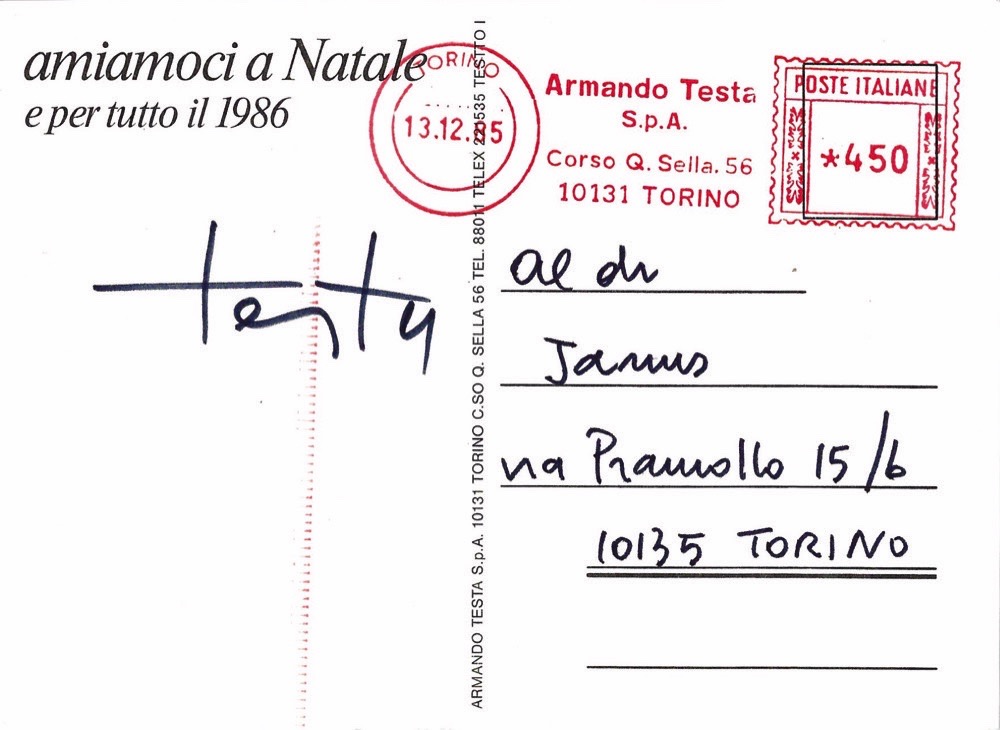 amiamoci a Natale
e per tutto il 1986
TORINO
13.12.85
Armando Testa
S.p.A.
Corso Q. Sella. 56
10131 TORINO
POSTE ITALIANE
*450
testa
ARMANDO TESTA S.p.A. 10131 TORINO C.SO Q. SELLA 56 TEL. 88011 TELEX 220535 TESTTO I
al dr
Janus
via Pramollo 15/b
10135 TORINO